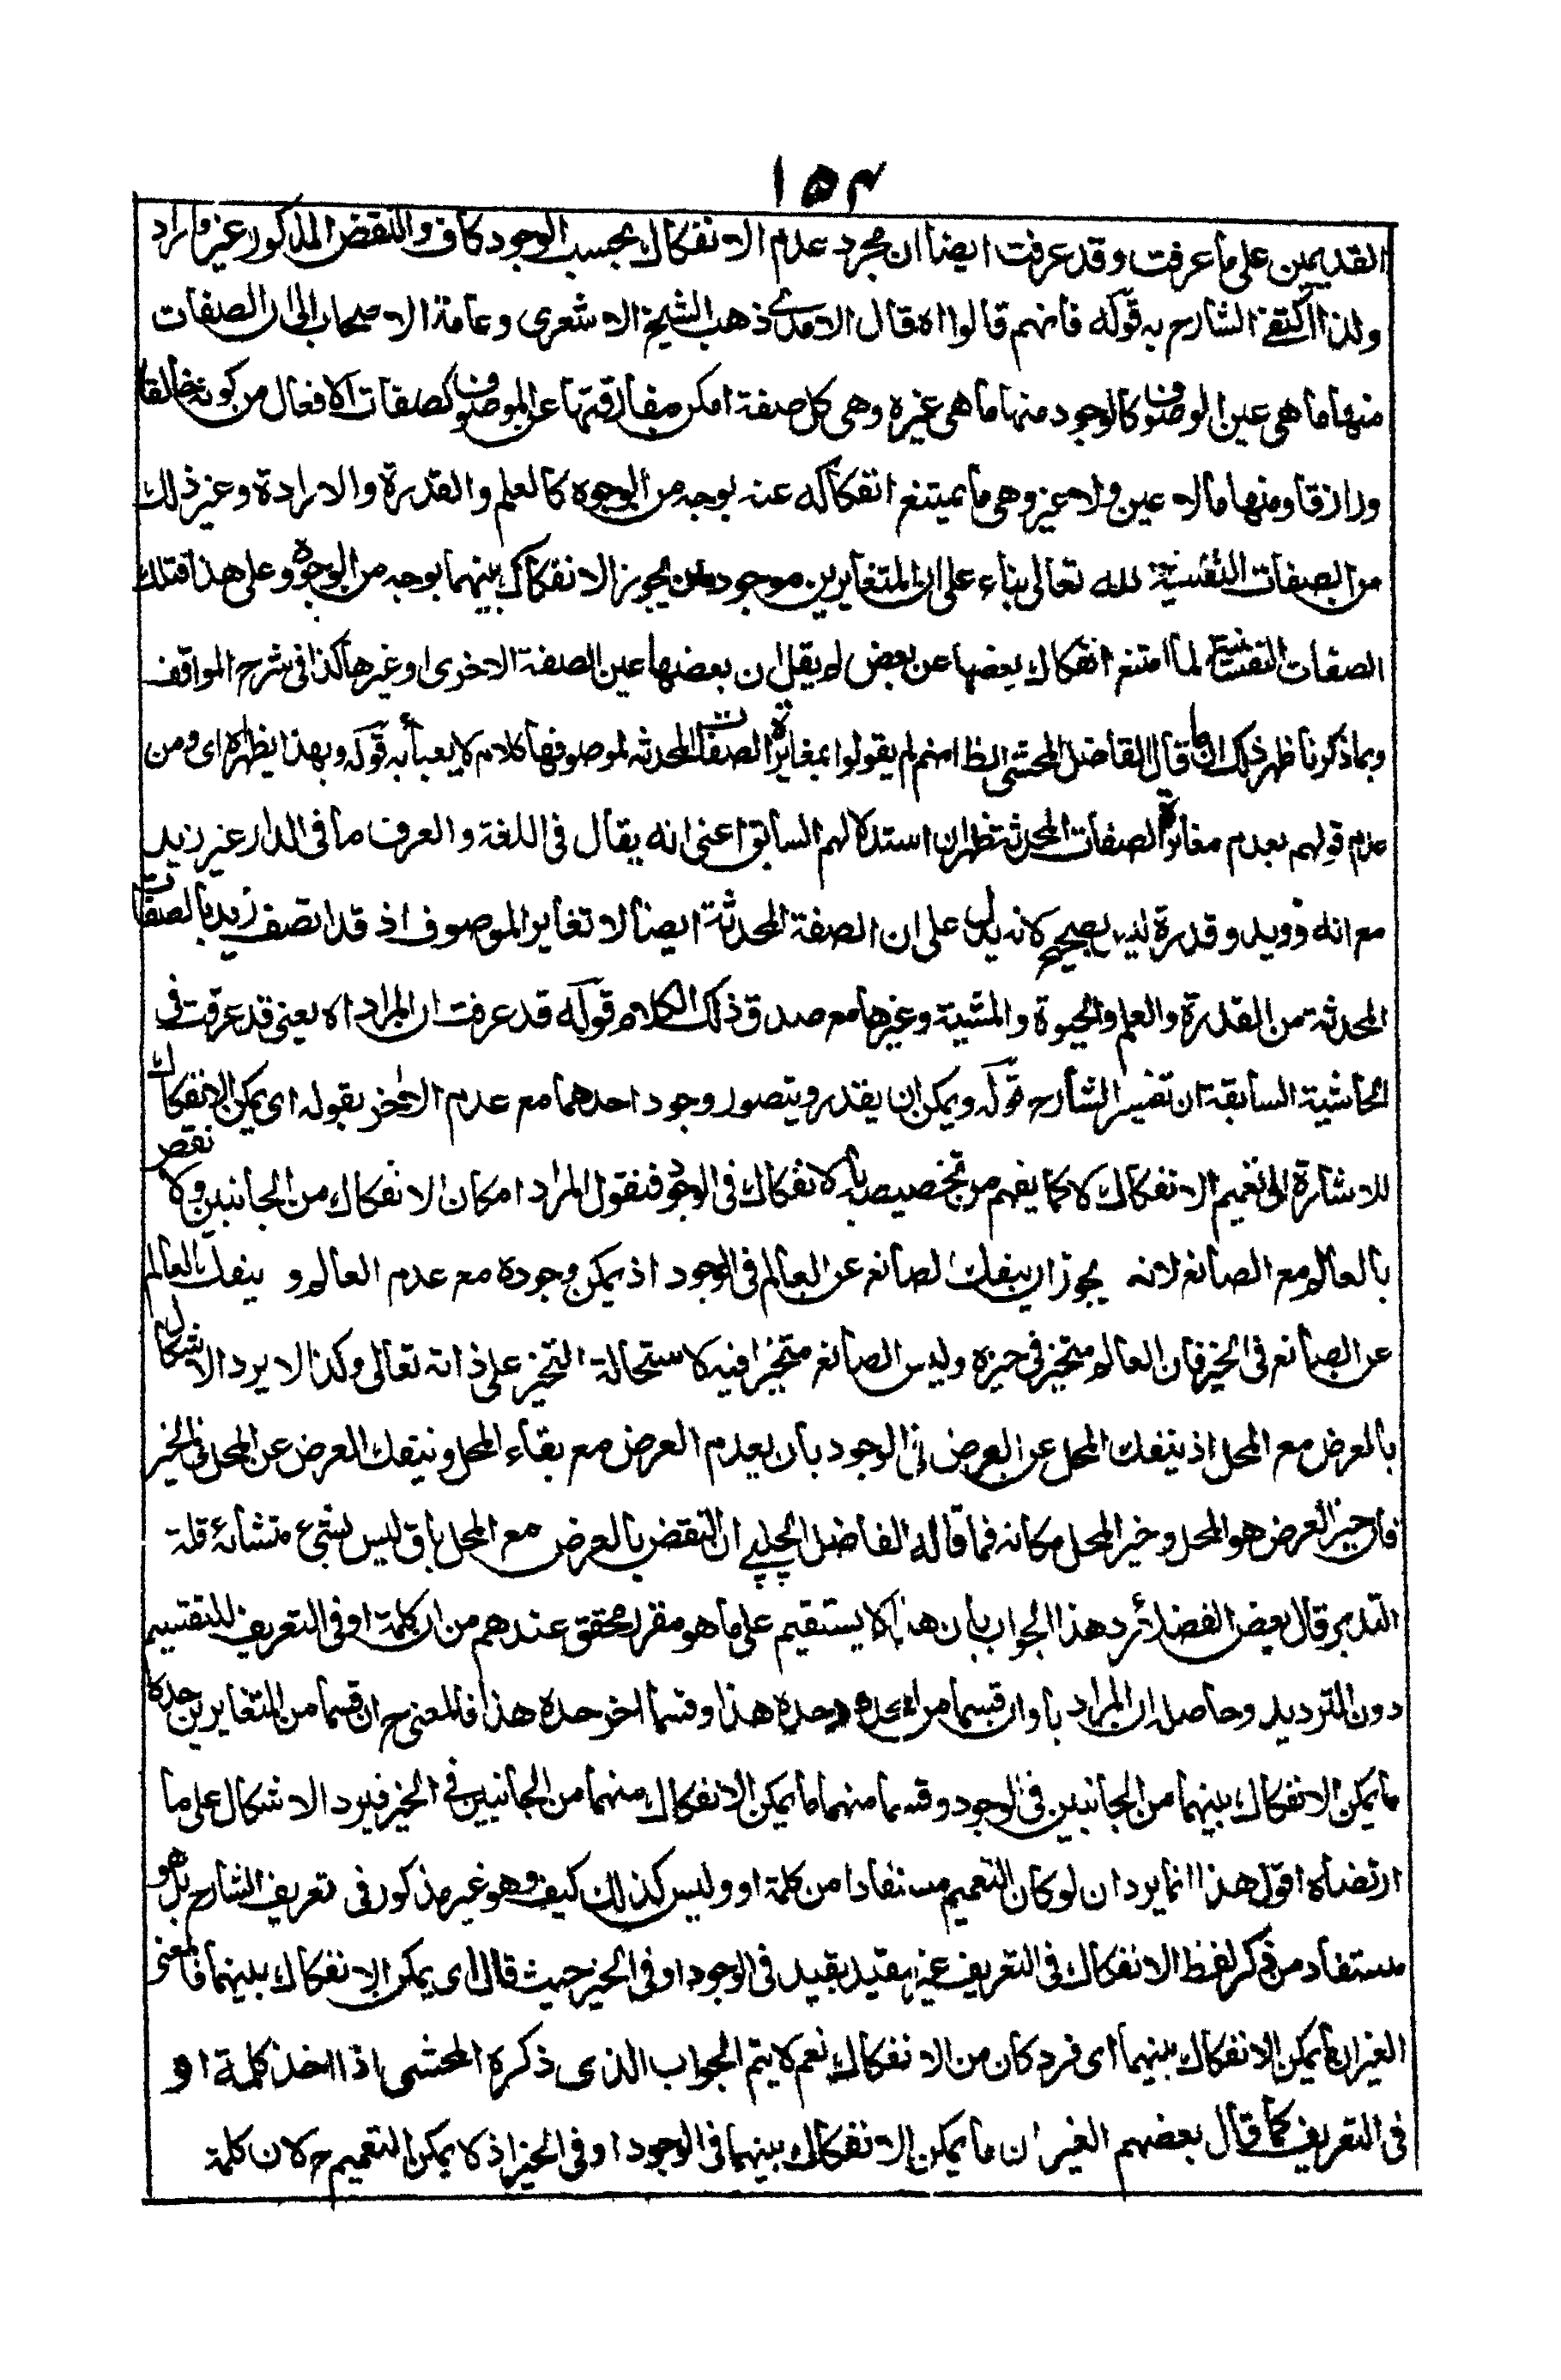 ١٥٤
القديمين على ما عرفت وقد عرفت ايضا ان مجرد عدم الانفكاك بحسب الوجود كاف والنقض المذكور غير وارد
ولذا اكتفى الشارح به قوله فانهم قالوا اه قال الامدى ذهب الشيخ الاشعرى وعامة الاصحاب الى ان الصفات
منها ما هى عين الموصوف كالوجود منها ما هى غيره وهى كل صفة امكن مفارقتها عن الموصوف كصفات الافعال من كونه خالقا
ورازقا ومنها ما لا عين ولا غير وهى ما يمتنع انفكاكه عنه بوجه من الوجوه كالعلم والقدرة والارادة وغير ذلك
من الصفات النفسية لله تعالى بناء على ان المتغايرين موجودان يجوز الانفكاك بينهما بوجه من الوجوه وعلى هذا فتلك
الصفات النفسية لما امتنع انفكاك بعضها عن بعض لم يقل ان بعضها عين الصفة الاخرى او غيرها كذا فى شرح المواقف
وبما ذكرنا ظهر ذلك ان ما قال الفاضل المحشى الظ انهم لم يقولوا بمغايرة الصفات المحدثه لموصوفها كلام لا يعبأ به قوله وبهذا يظهر اه اى ومن
عدم قولهم بعدم مغايرة الصفات المحدثة يظهر ان استدلالهم السابق اعنى انه يقال فى اللغة والعرف ما فى الدار غير زيد
مع انه ذو يد وقدرة ليس بصحيح لانه يدل على ان الصفة المحدثة ايضا لا تغاير الموصوف اذ قد اتصف زيد بالصفات
المحدثة من القدرة والعلم والحيوة والمشية وغيرها مع صدق ذلك الكلام قوله قد عرفت ان المراد اه يعنى قد عرفت فى
الحاشية السابقة ان تفسير الشارح قوله ويمكن ان يقدر ويتصور وجود احدهما مع عدم الاخر بقوله اى يمكن الانفكاك
للاشارة الى تعميم الانفكاك لا كما يفهم من تخصيصه بالانفكاك فى الوجود فنقول المراد امكان الانفكاك من الجانبين ولا نقض
بالعالم مع الصانع لانه يجوز ان ينفك الصانع عن العالم فى الوجود اذ يمكن وجوده مع عدم العالم و ينفك العالم
عن الصانع فى الحيز فان العالم متحيز فى حيزه وليس الصانع متحيزا فيه لاستحالة التحيز على ذاته تعالى وكذا لا يرد الاشكال
بالعرض مع المحل اذ ينفك المحل عن العرض فى الوجود بان يعدم العرض مع بقاء المحل وينفك العرض عن المحل فى الحيز
فان حيز العرض هو المحل وحيز المحل مكانه فما قاله الفاضل الچلپى ان النقض بالعرض مع المحل باق ليس بشىء منشائه قلة
التدبر قال بعض الفضلاء رد هذا الجواب بان هذا لا يستقيم على ما هو مقرر محقق عندهم من ان كلمة او فى التعريف للتقسيم
دون الترديد وحاصله ان المراد باو ان قسما من المحدود حده هذا وقسما اخر حده هذا فالمعنى ح ان قسما من المتغايرين حده
ما يمكن الانفكاك بينهما من الجانبين فى الوجود وقسما منهما ما يمكن الانفكاك منهما من الجانبين فى الحيز فيرد الاشكال على ما
ارتضاه اقول هذا انما يرد ان لو كان التعميم مستفادا من كلمة او وليس كذلك كيف وهو غير مذكور فى تعريف الشارح بل هو
مستفاد من ذكر لفظ الانفكاك فى التعريف غير مقيد بقيد فى الوجود او فى الحيز حيث قال اى يمكن الانفكاك بينهما فالمعنى
الغيران ما يمكن الانفكاك بينهما اى فرد كان من الانفكاك نعم لا يتم الجواب الذى ذكره المحشى اذا اخذ كلمة او
فى التعريف كما قال بعضهم الغيران ما يمكن الانفكاك بينهما فى الوجود او فى الحيز اذ لا يمكن التعميم ح لان كلمة